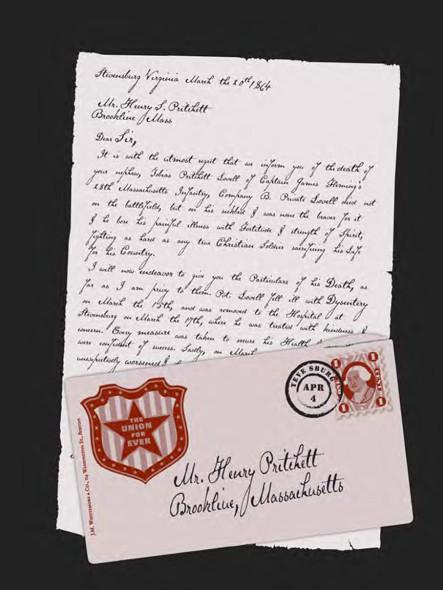 Stevensburg Virginia March the 20th, 1864
Mr. Henry S. Pritchett
Brookline, Mass
Dear Sir,
It is with the utmost regret that we inform you of the death of
your nephew, Tobias Pritchett Lovell of Captain James Fleming's
28th Massachusetts Infantry, Company B. Private Lovell died not
on the battlefield, but in his sickbed. I was none the braver for it
& he bore his painful illness with Fortitude & strength of Spirit,
fighting as hard as any true Christian Soldier sacrificing his Life
for his Country.
I will now endeavor to give you the Particulars of his Death, as
far as I am privy to them. Pvt. Lovell fell ill with Dysentery
on March the 15th, and was removed to the Hospital at
Stevensburg on March the 17th, where he was treated with kindness &
concern. Every measure was taken to secure his Health
were confident of success. Sadly, on March
unexpectedly worsened &
TEVE SBURG
APR
4
1 1
1 1
THE
UNION
FOR
EVER
Mr. Henry Pritchett
Brookline, Massachusetts